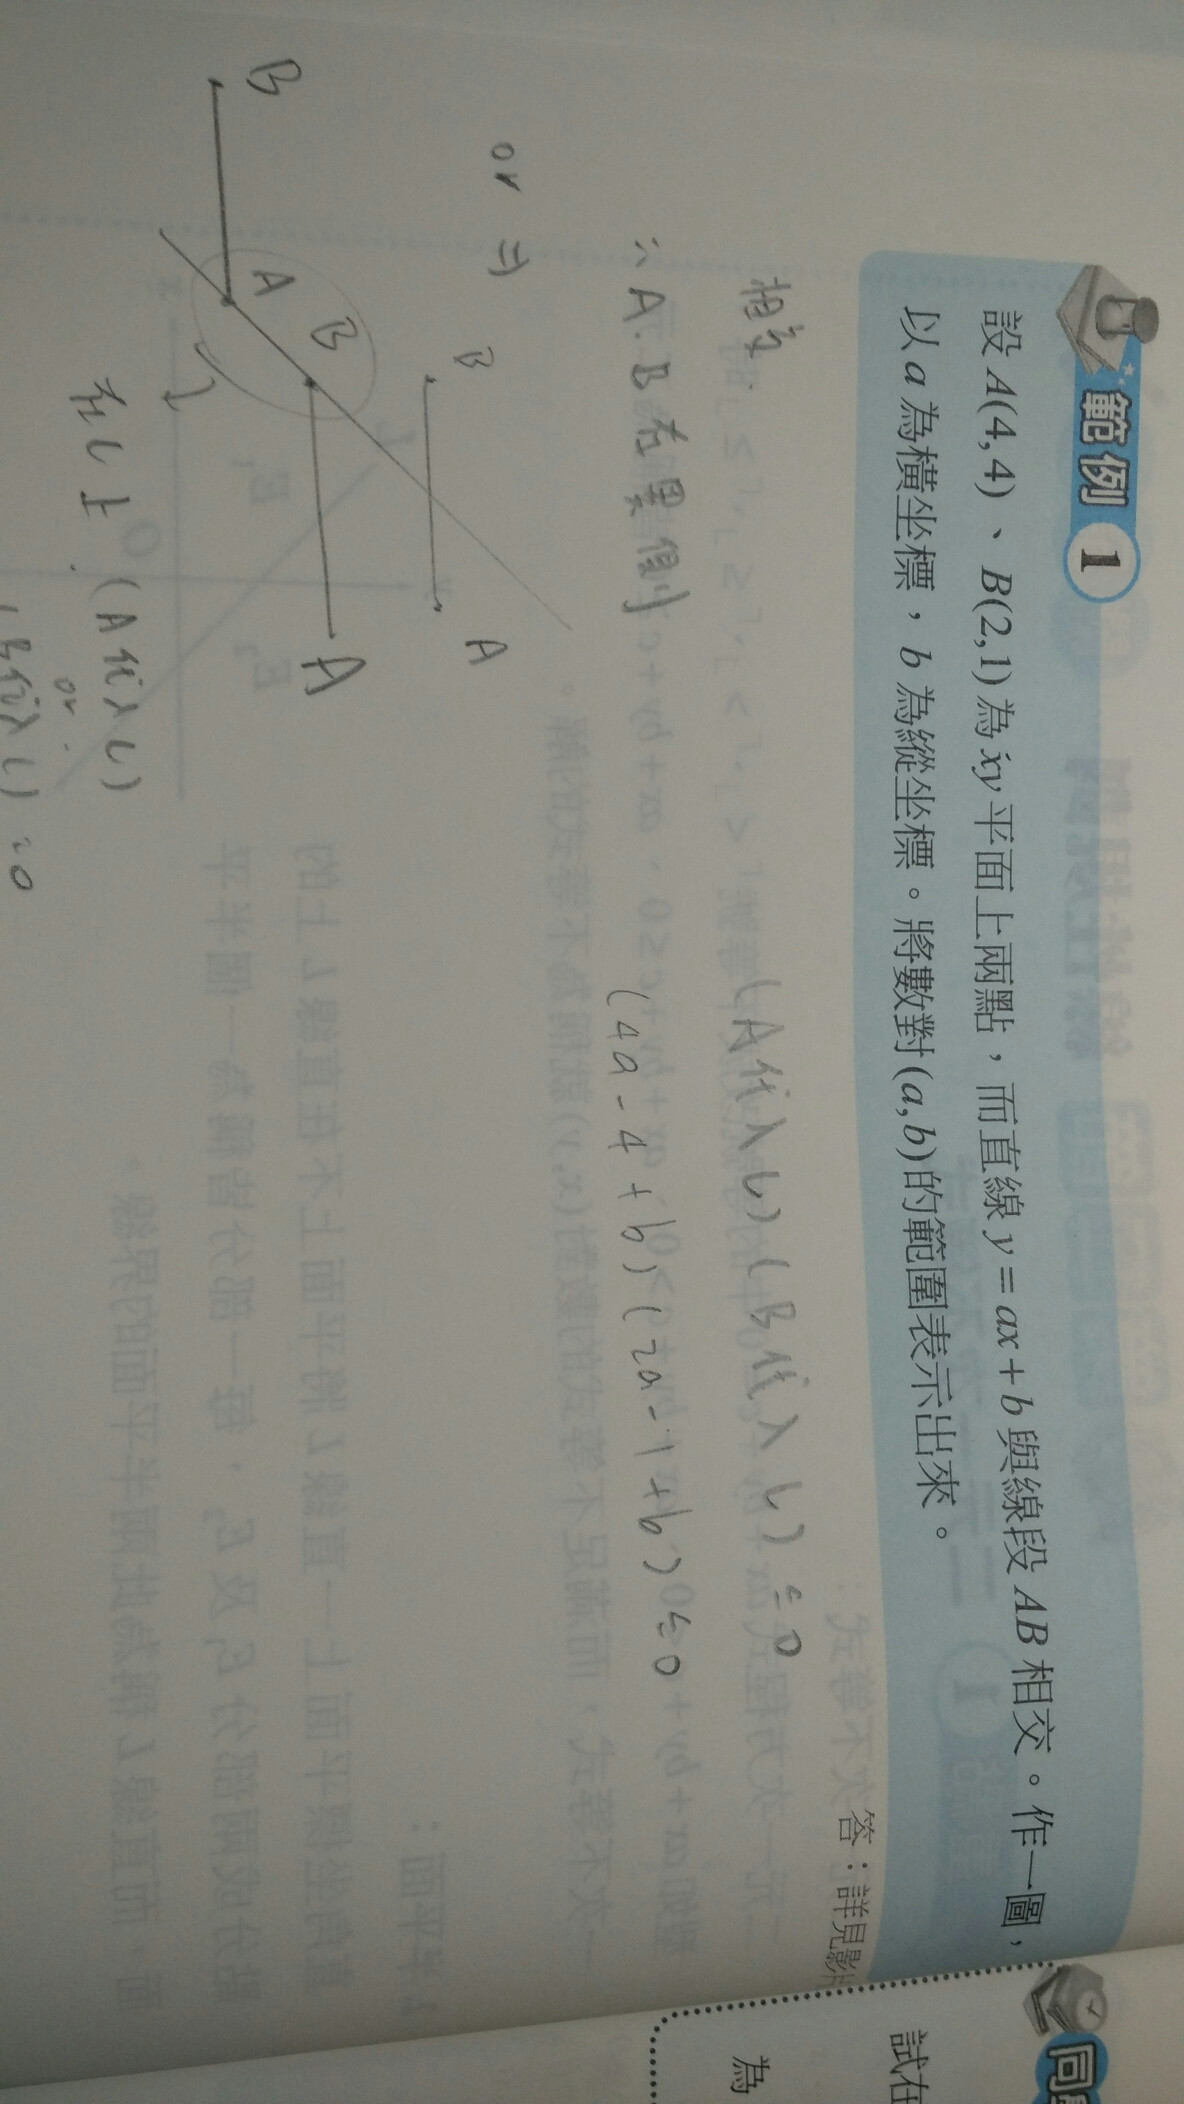 範例 1
設A(4,4)、B(2,1)為xy平面上兩點，而直線y=ax+b與線段AB相交。作一圖，
以a為橫坐標，b為縱坐標。將數對(a,b)的範圍表示出來。
答：詳見影
相交 (A代入L)(B代入L)≤0
∴A.B右異側 (4a-4+b)(2a-1+b)≤0
or ⇒
B
A
B
A
B
A
L
在L上 (A代入L)
or
(B代入L) =0
同
試在
為